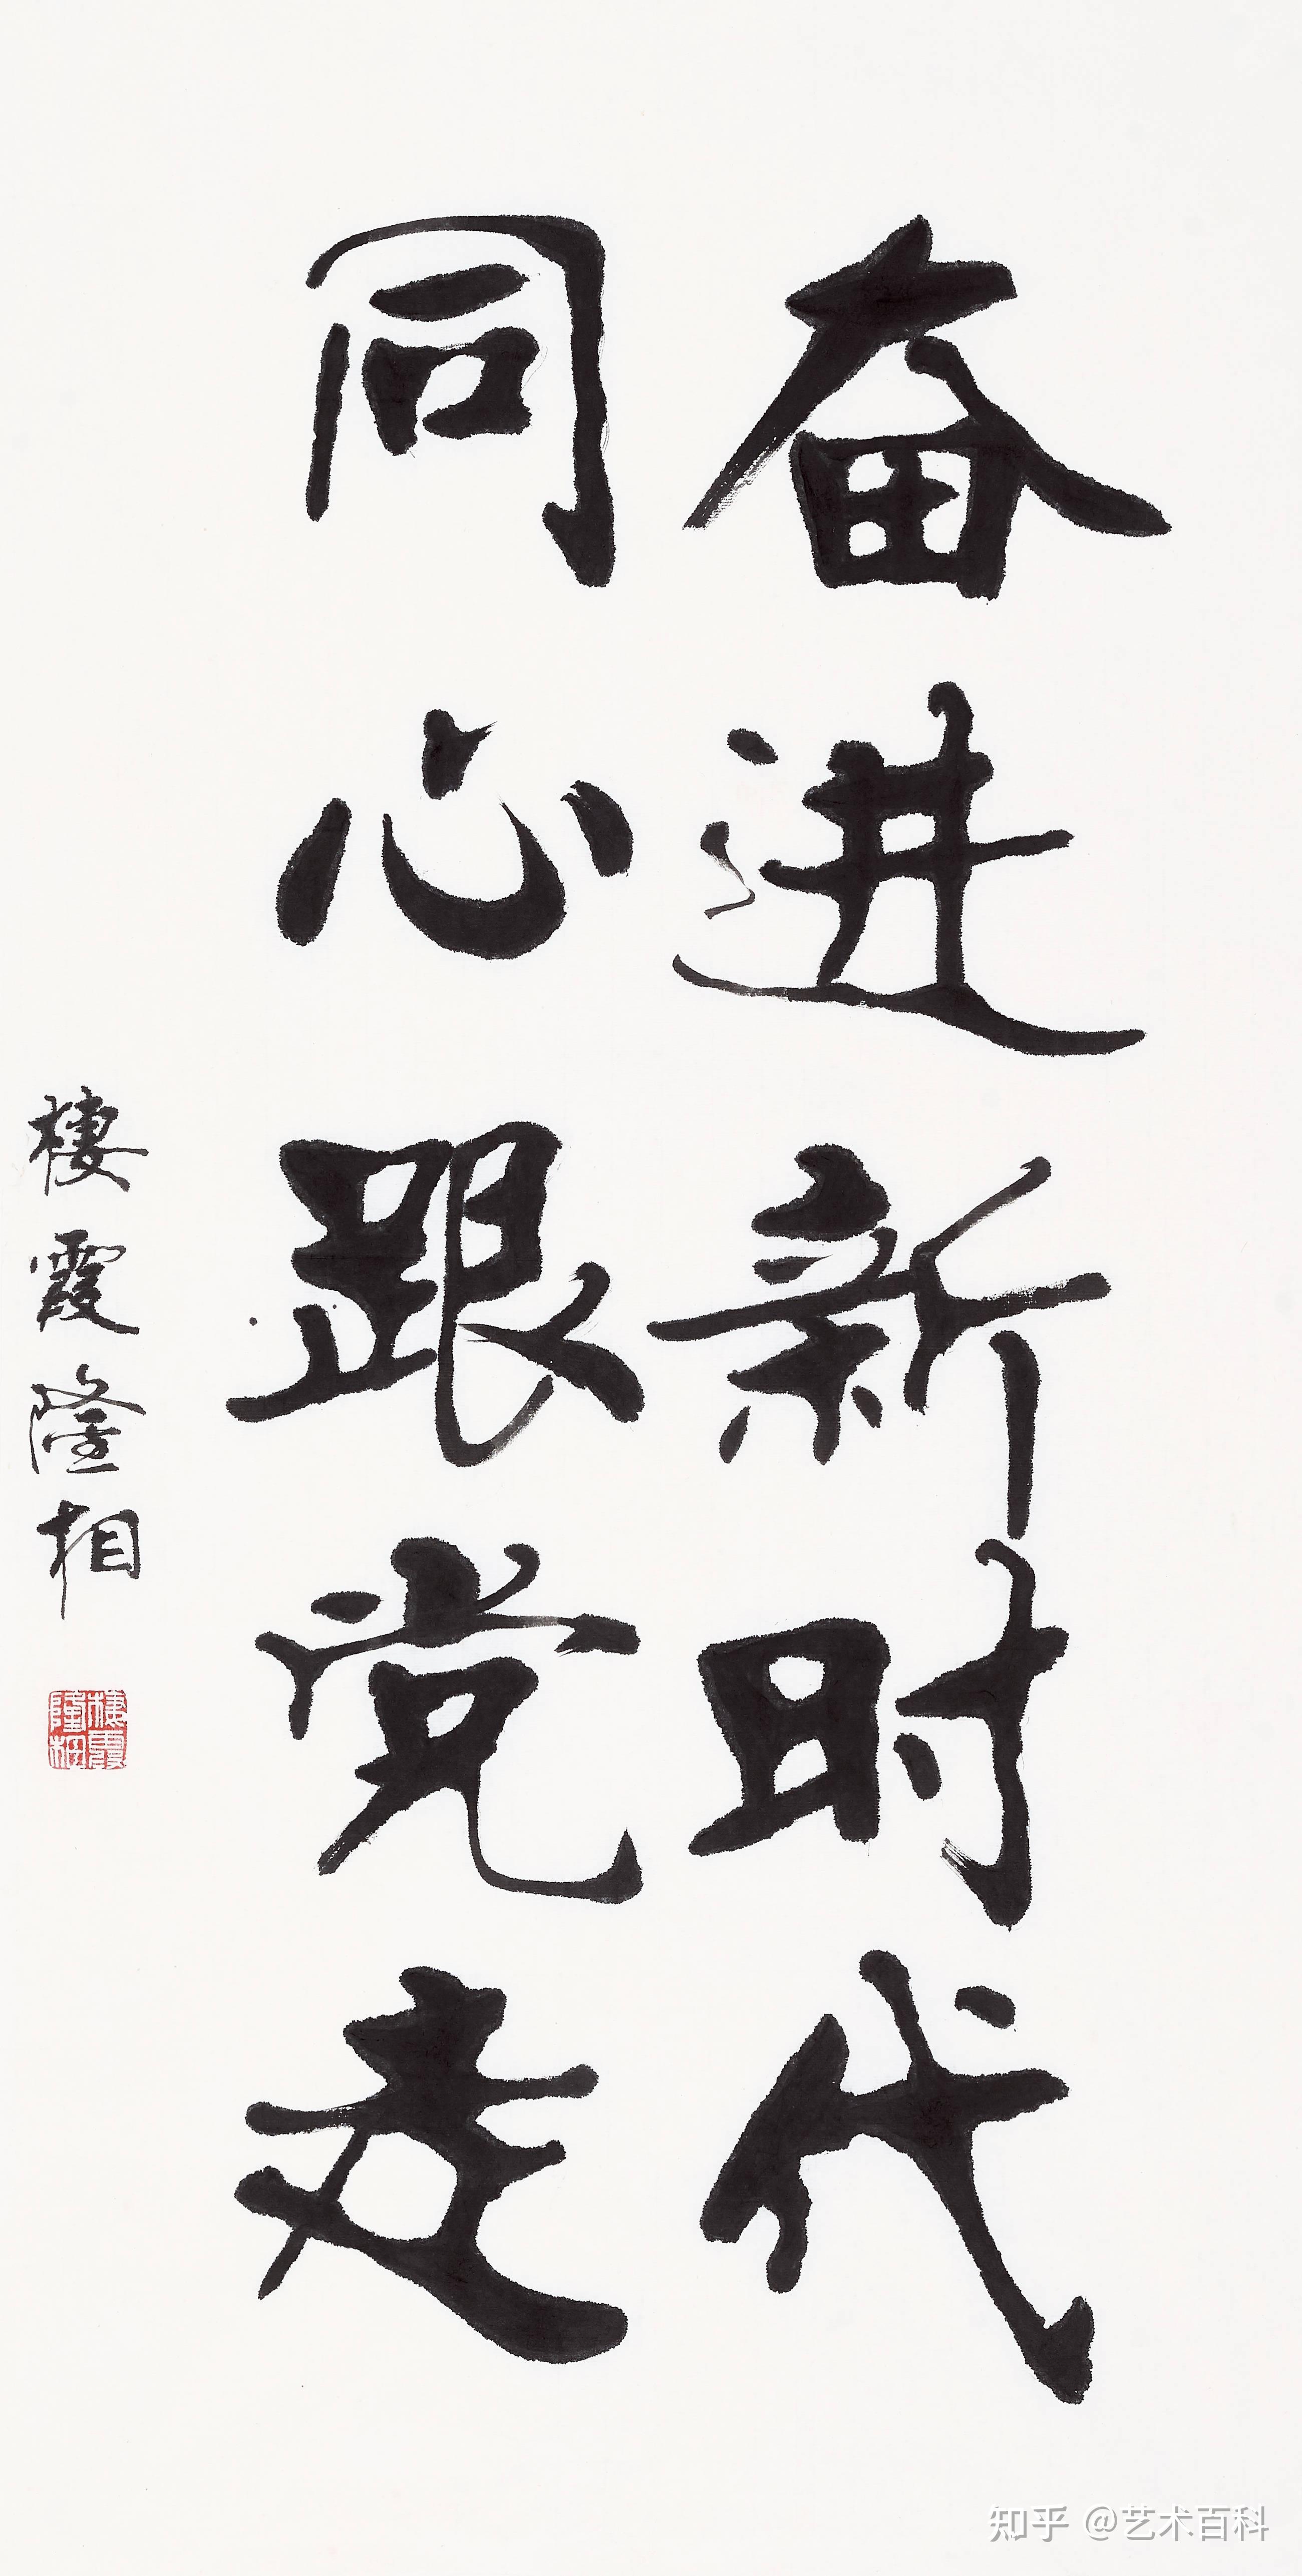 奋进新时代
同心跟党走
棲霞隆相
棲霞
隆相
知乎 @艺术百科